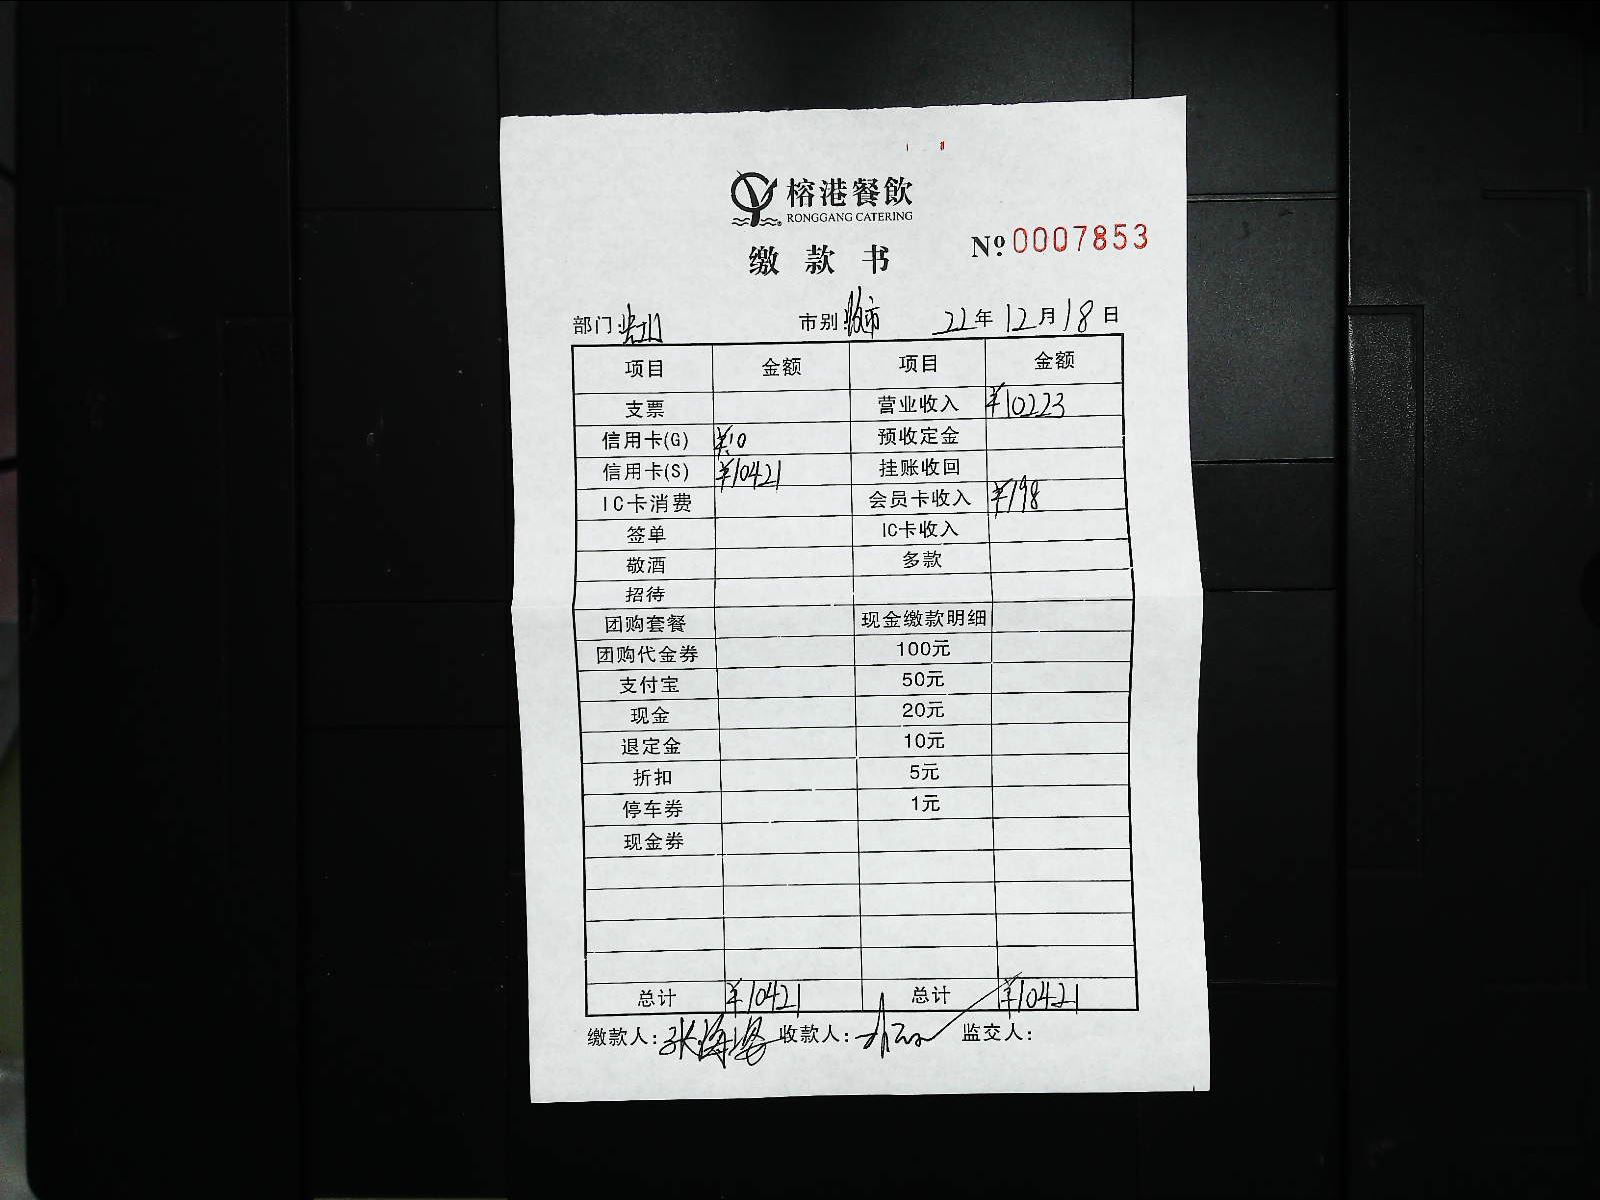 榕港餐飲
RONGGANG CATERING
缴款书 №0007853
部门: 市别: 22年12月18日
项目 金额 项目 金额
支票 营业收入 ¥10223
信用卡(G) ¥10 预收定金
信用卡(S) ¥10421 挂账收回
IC卡消费 会员卡收入 ¥198
签单 IC卡收入
敬酒 多款
招待
团购套餐 现金缴款明细
团购代金券 100元
支付宝 50元
现金 20元
退定金 10元
折扣 5元
停车券 1元
现金券
总计 ¥10421 总计 ¥10421
缴款人: 张海 收款人: 监交人: